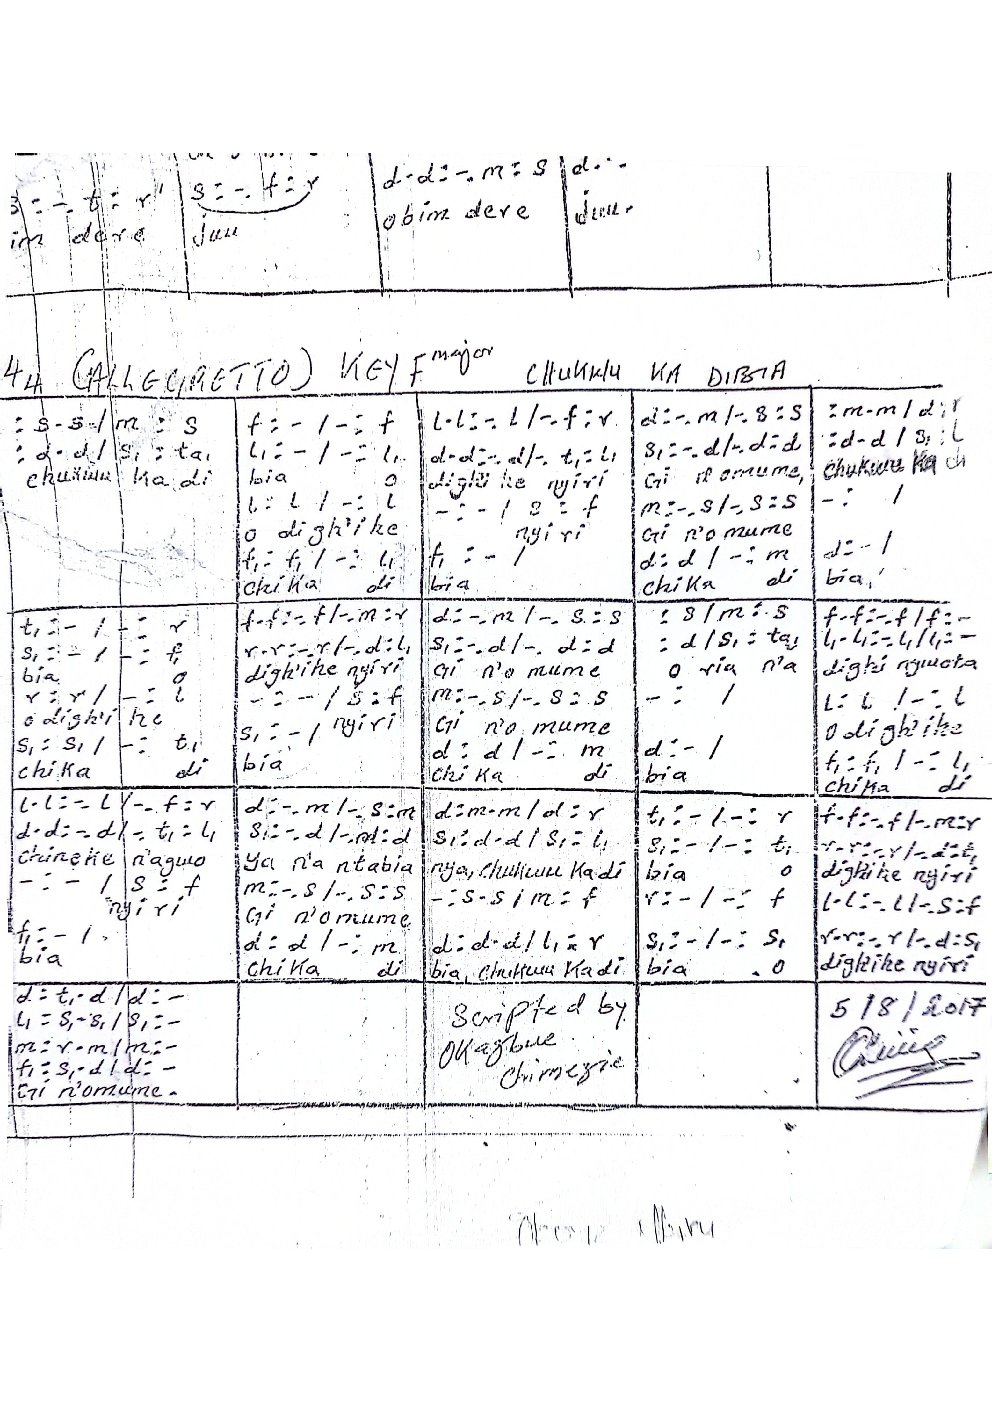 d-d:-.m:s
d--
s:-.t:r'
s:-.f:r
im dere
Juu
obim dere
Juu.
44 (ALLEGRETTO) KEY F major CHUKWU KA DIBIA
:s-s/m:s
:d-d/s₁:ta₁
chukwu ka di
f:-/-:f
l₁:-/-:l₁
bia o
l:l/-:l
o digh'ike
f₁:f₁/-:l₁
chika di
l-l:-.l/-.f:r
d-d:-.d/-.t₁:l₁
dighi ke nyiri
-:-/s:f
nyiri
f₁:-/
bia
d:-.m/-.s:s
s₁:-.d/-.d:d
Gi n'omume,
m:-.s/-.s:s
Gi n'o mume
d:d/-:m
chika di
:m-m/d:r
:d-d/s₁:l
chukwu ka di
-: /
d:-/
bia,
t₁:-/-:r
s₁:-/-:f₁
bia o
r:r/-:l
o digh'i ke
s₁:s₁/-:t₁
chika di
f-f:-.f/-.m:r
r-r:-.r/-.d:l₁
digh'ike nyiri
-:-/s:f
nyiri
s₁:-/
bia
d:-.m/-.s:s
s₁:-.d/-.d:d
Gi n'o mume
m:-.s/-.s:s
Gi n'o mume
d:d/-:m
chika di
:s/m:s
:d/s₁:ta₁
o ria n'a
-: /
d:-/
bia
f-f:-.f/f:-
l₁-l₁:-.l₁/l₁:-
dighi nwuota
l:l/-:l
o digh'ike
f₁:f₁/-:l₁
chika di
l-l:-.l/-.f:r
d-d:-.d/-.t₁:l₁
chineke n'aguo
-:-/s:f
nyiri
f₁:-/.
bia
d:-.m/-.s:m
s₁:-.d/-.d:d
ya n'a ntabia
m:-.s/-.s:s
Gi n'omume
d:d/-:m
chika di
d:m-m/d:r
s₁:d-d/s₁:l₁
nya, chukwu kadi
-:s-s/m:f
d:d-d/l₁:r
bia, chukwu kadi
t₁:-/-:r
s₁:-/-:t₁
bia o
r:-/-:f
s₁:-/-:s₁
bia .o
f-f:-.f/-.m:r
r-r:-.r/-.d:t₁
dighike nyiri
l-l:-.l/-.s:f
r-r:-.r/-.d:s₁
dighike nyiri
d:t₁-d/d:-
l₁:s₁-s₁/s₁:-
m:r-m/m:-
f₁:s₁-d/d:-
Gi n'omume.
Scripted by
Okagbue
chimezie
5/8/2017